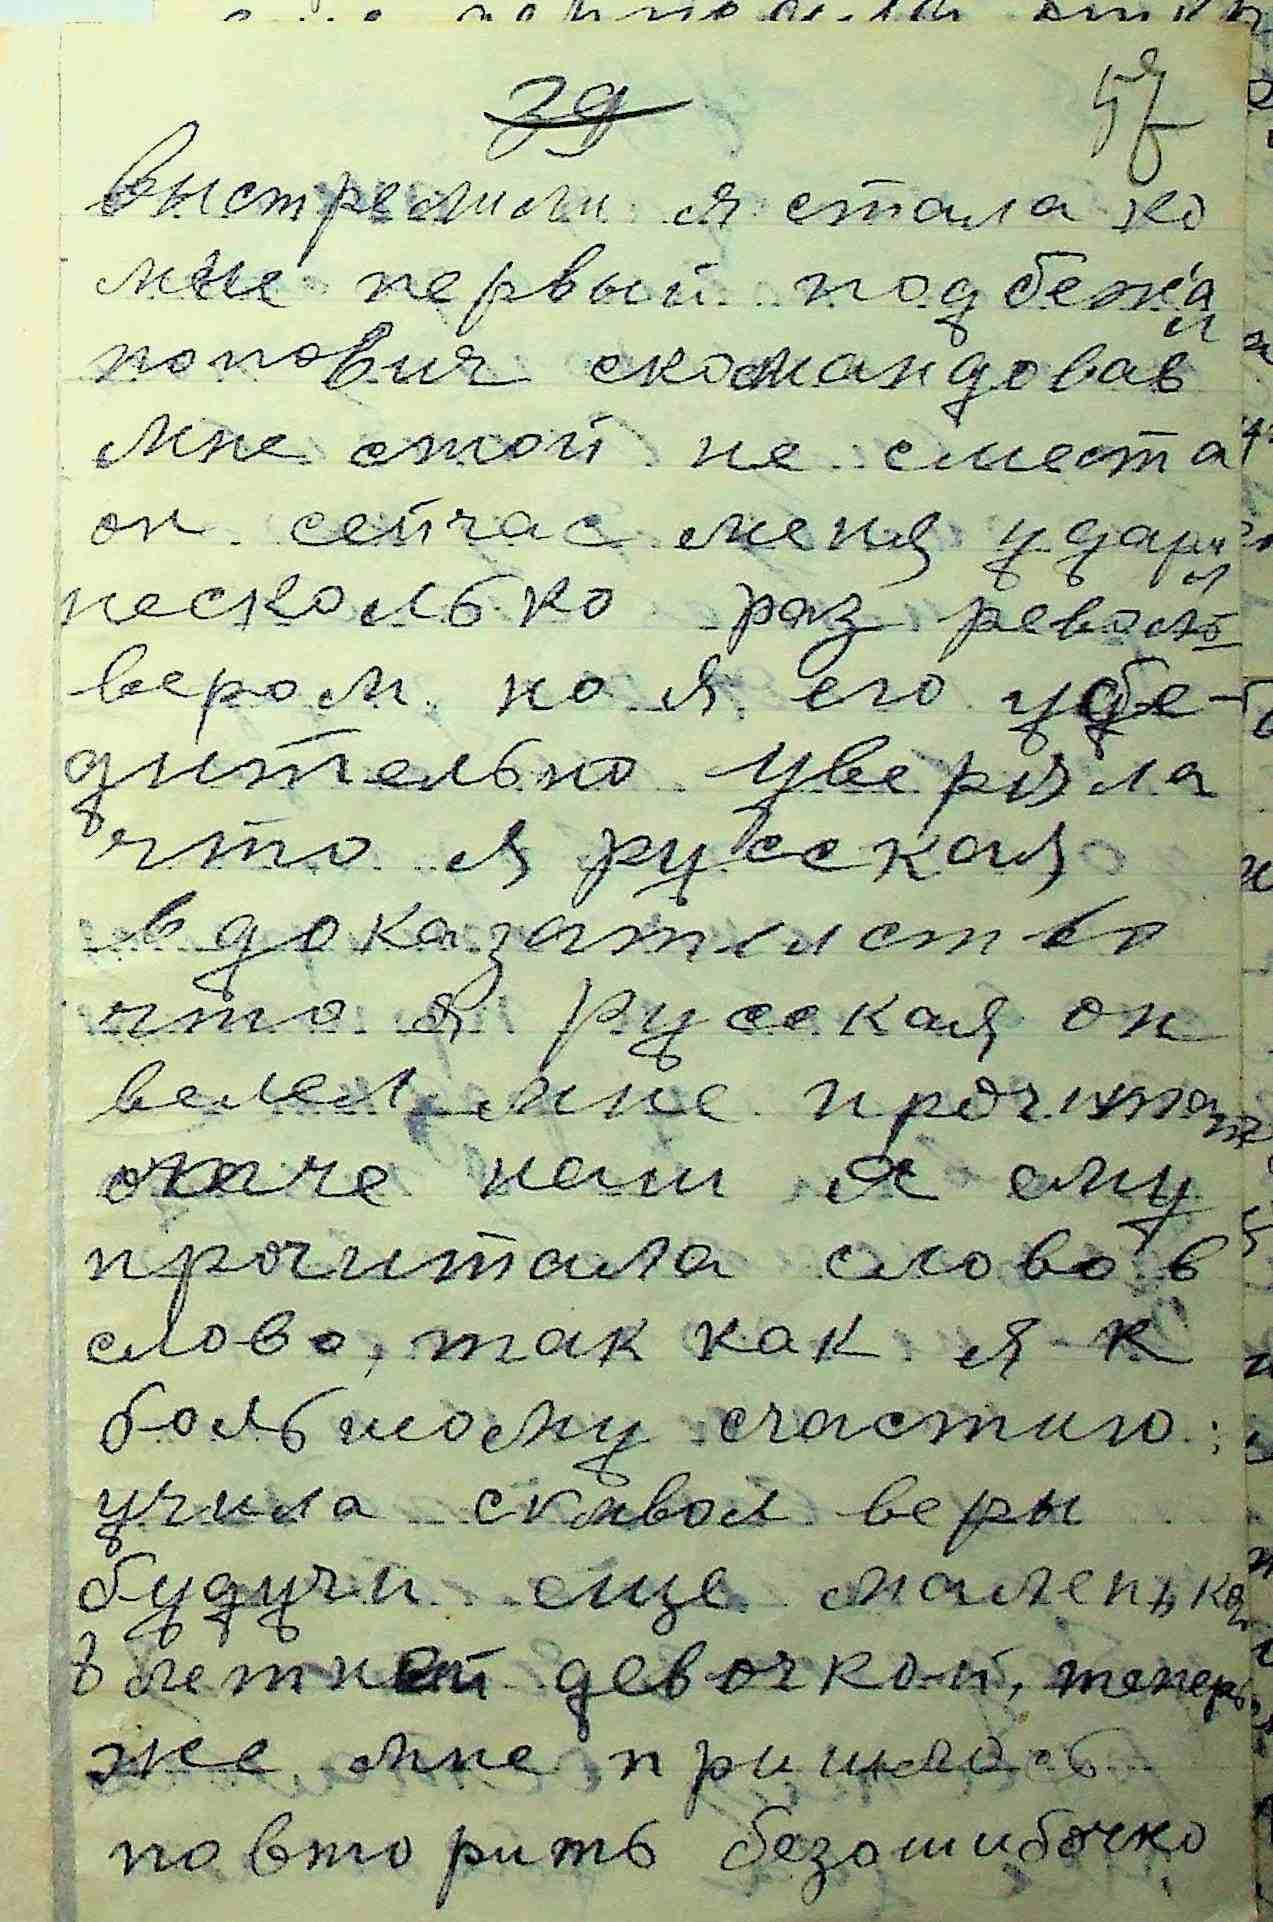 39
57
выстрелили я стала ко
мне первый подбежал
попович скомандовав
мне стой не сместа
он сейчас меня ударил
несколько раз револь
вером но я его убе-
дительно уверила
что я русская
в доказателство
что я русская он
велел мне прочитать
отче наш я ему
прочитала слово в
слово, так как я к
большому счастию
учила символ веры
будучи еще маленькой
8 летней девочкой, теперь
же мне пришлось
повторить безошибочно